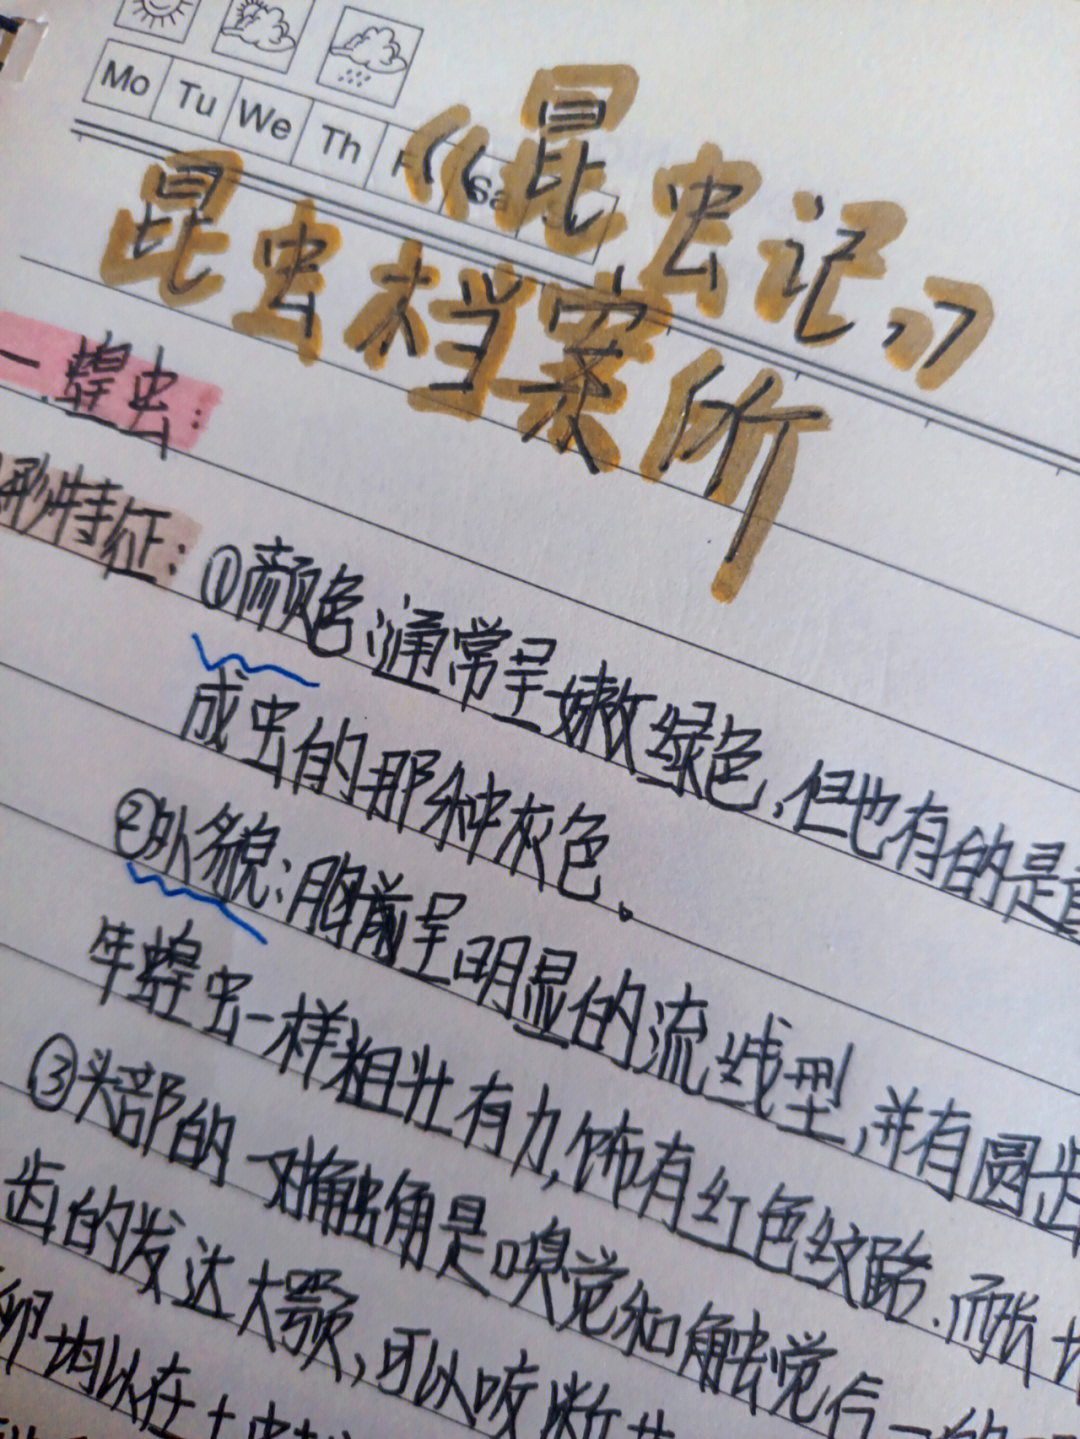 Mo Tu We Th F Sa
《昆虫记》
昆虫档案阶
一 蝗虫：
形特征：①颜色：通常呈嫩绿色，但也有的是
成虫的那种灰色。
②外貌：胸前呈明显的流线型，并有圆齿
牛蝗虫一样粗壮有力，饰有红色纹路．而
③头部的一对触角是嗅觉和触觉合一的
齿的发达大颚，可以咬断
卵均以在土中